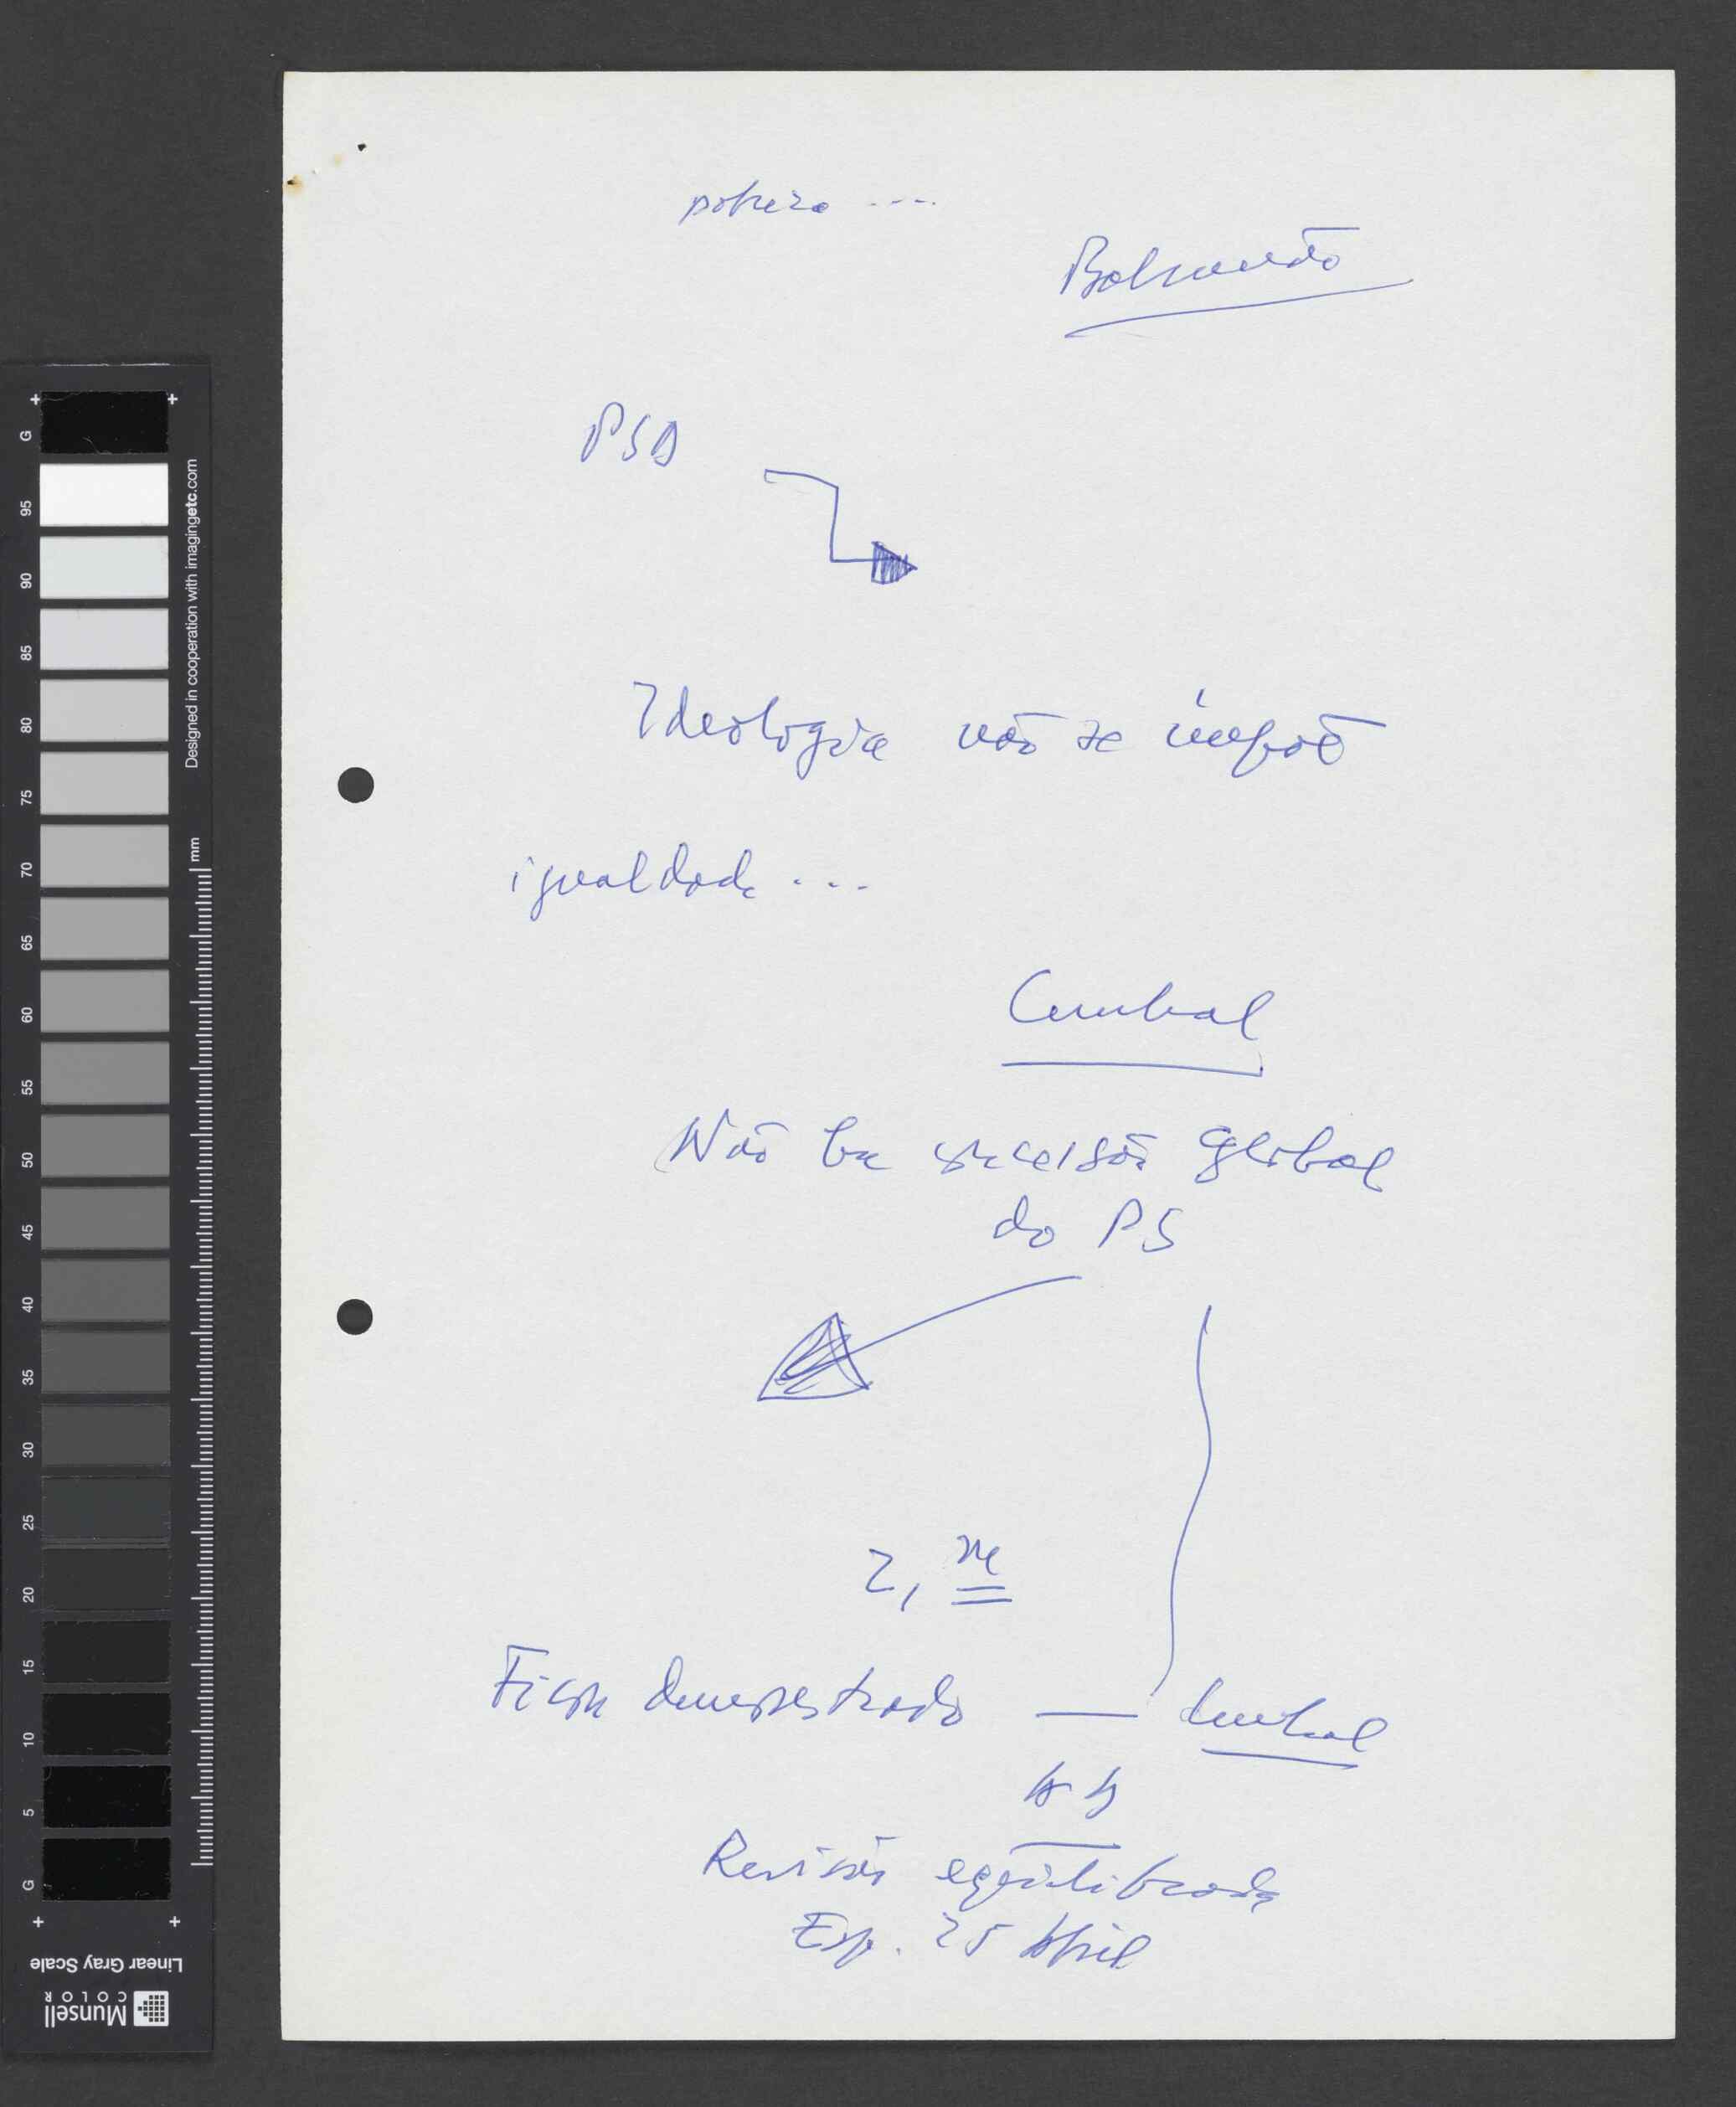 pobreza ....
Balsemão
PSD
Ideologia não se impõe
igualdade ...
Cunhal
Não há global
do PS
2,
Ficou demonstrado — Cunhal
Revisão equilibrada
Esp. 25 Abril
G
95
90
85
80
75
70
65
60
55
50
45
40
35
30
25
20
15
10
5
G
mm
Designed in cooperation with imagingetc.com
Linear Gray Scale
Munsell
COLOR